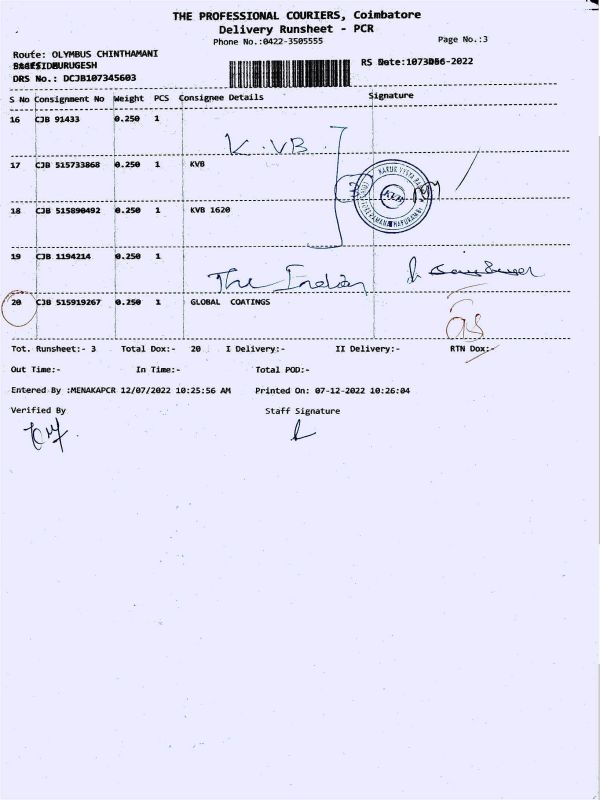 THE PROFESSIONAL COURIERS, Coimbatore
Delivery Runsheet - PCR
Phone No.:0422-3505555
Page No.:3
Route: OLYMBUS CHINTHAMANI
DRS No.: DCJB107345603
S No Consignment No Weight PCS Consignee Details Signature
16 CJB 91433 0.250 1
K.V.B.
17 CJB 515733868 0.250 1 KVB
18 CJB 515890492 0.250 1 KVB 1620
19 CJB 1194214 0.250 1
The Indian
20 CJB 515919267 0.250 1 GLOBAL COATINGS
Tot. Runsheet:- 3 Total Dox:- 20 I Delivery:- II Delivery:- RTN Dox:-
Out Time:- In Time:- Total POD:-
Entered By :MENAKAPCR 12/07/2022 10:25:56 AM Printed On: 07-12-2022 10:26:04
Verified By Staff Signature